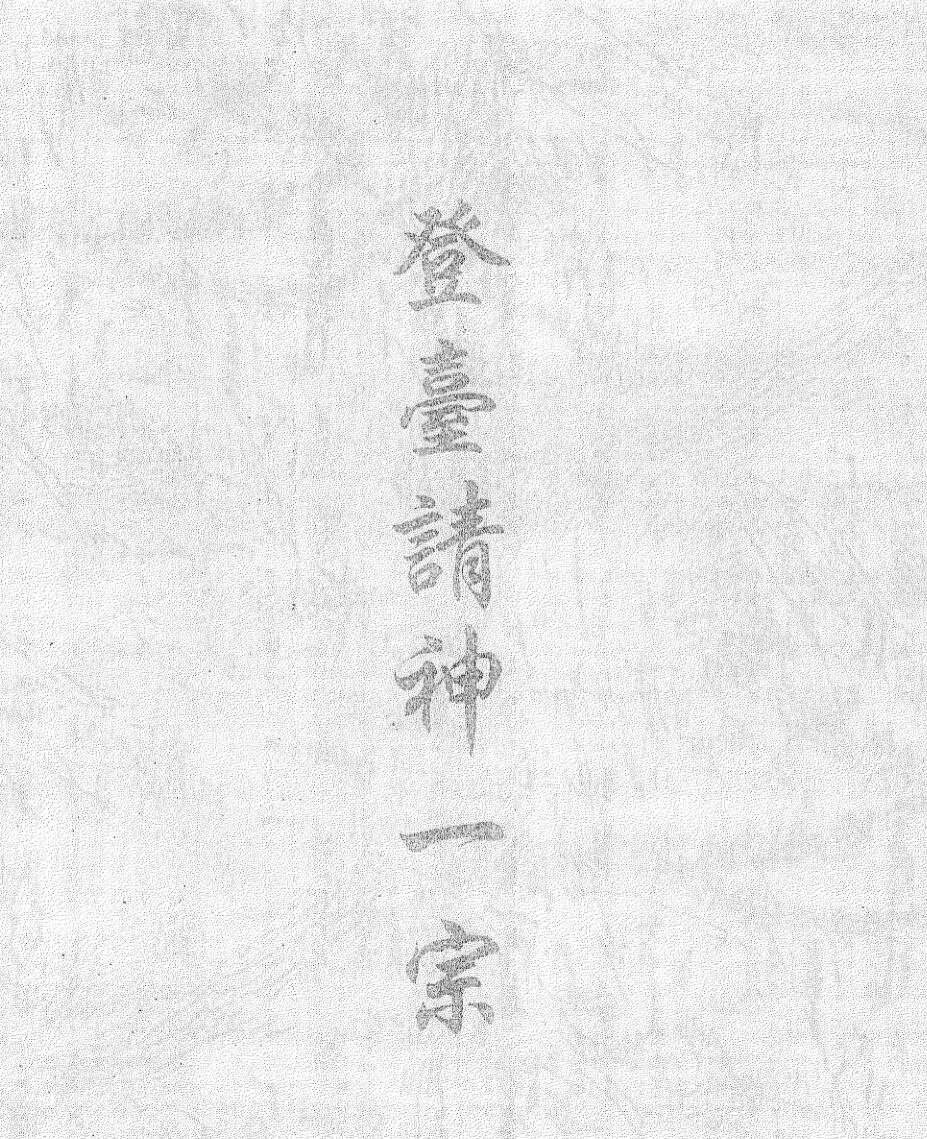 登臺請神一宗